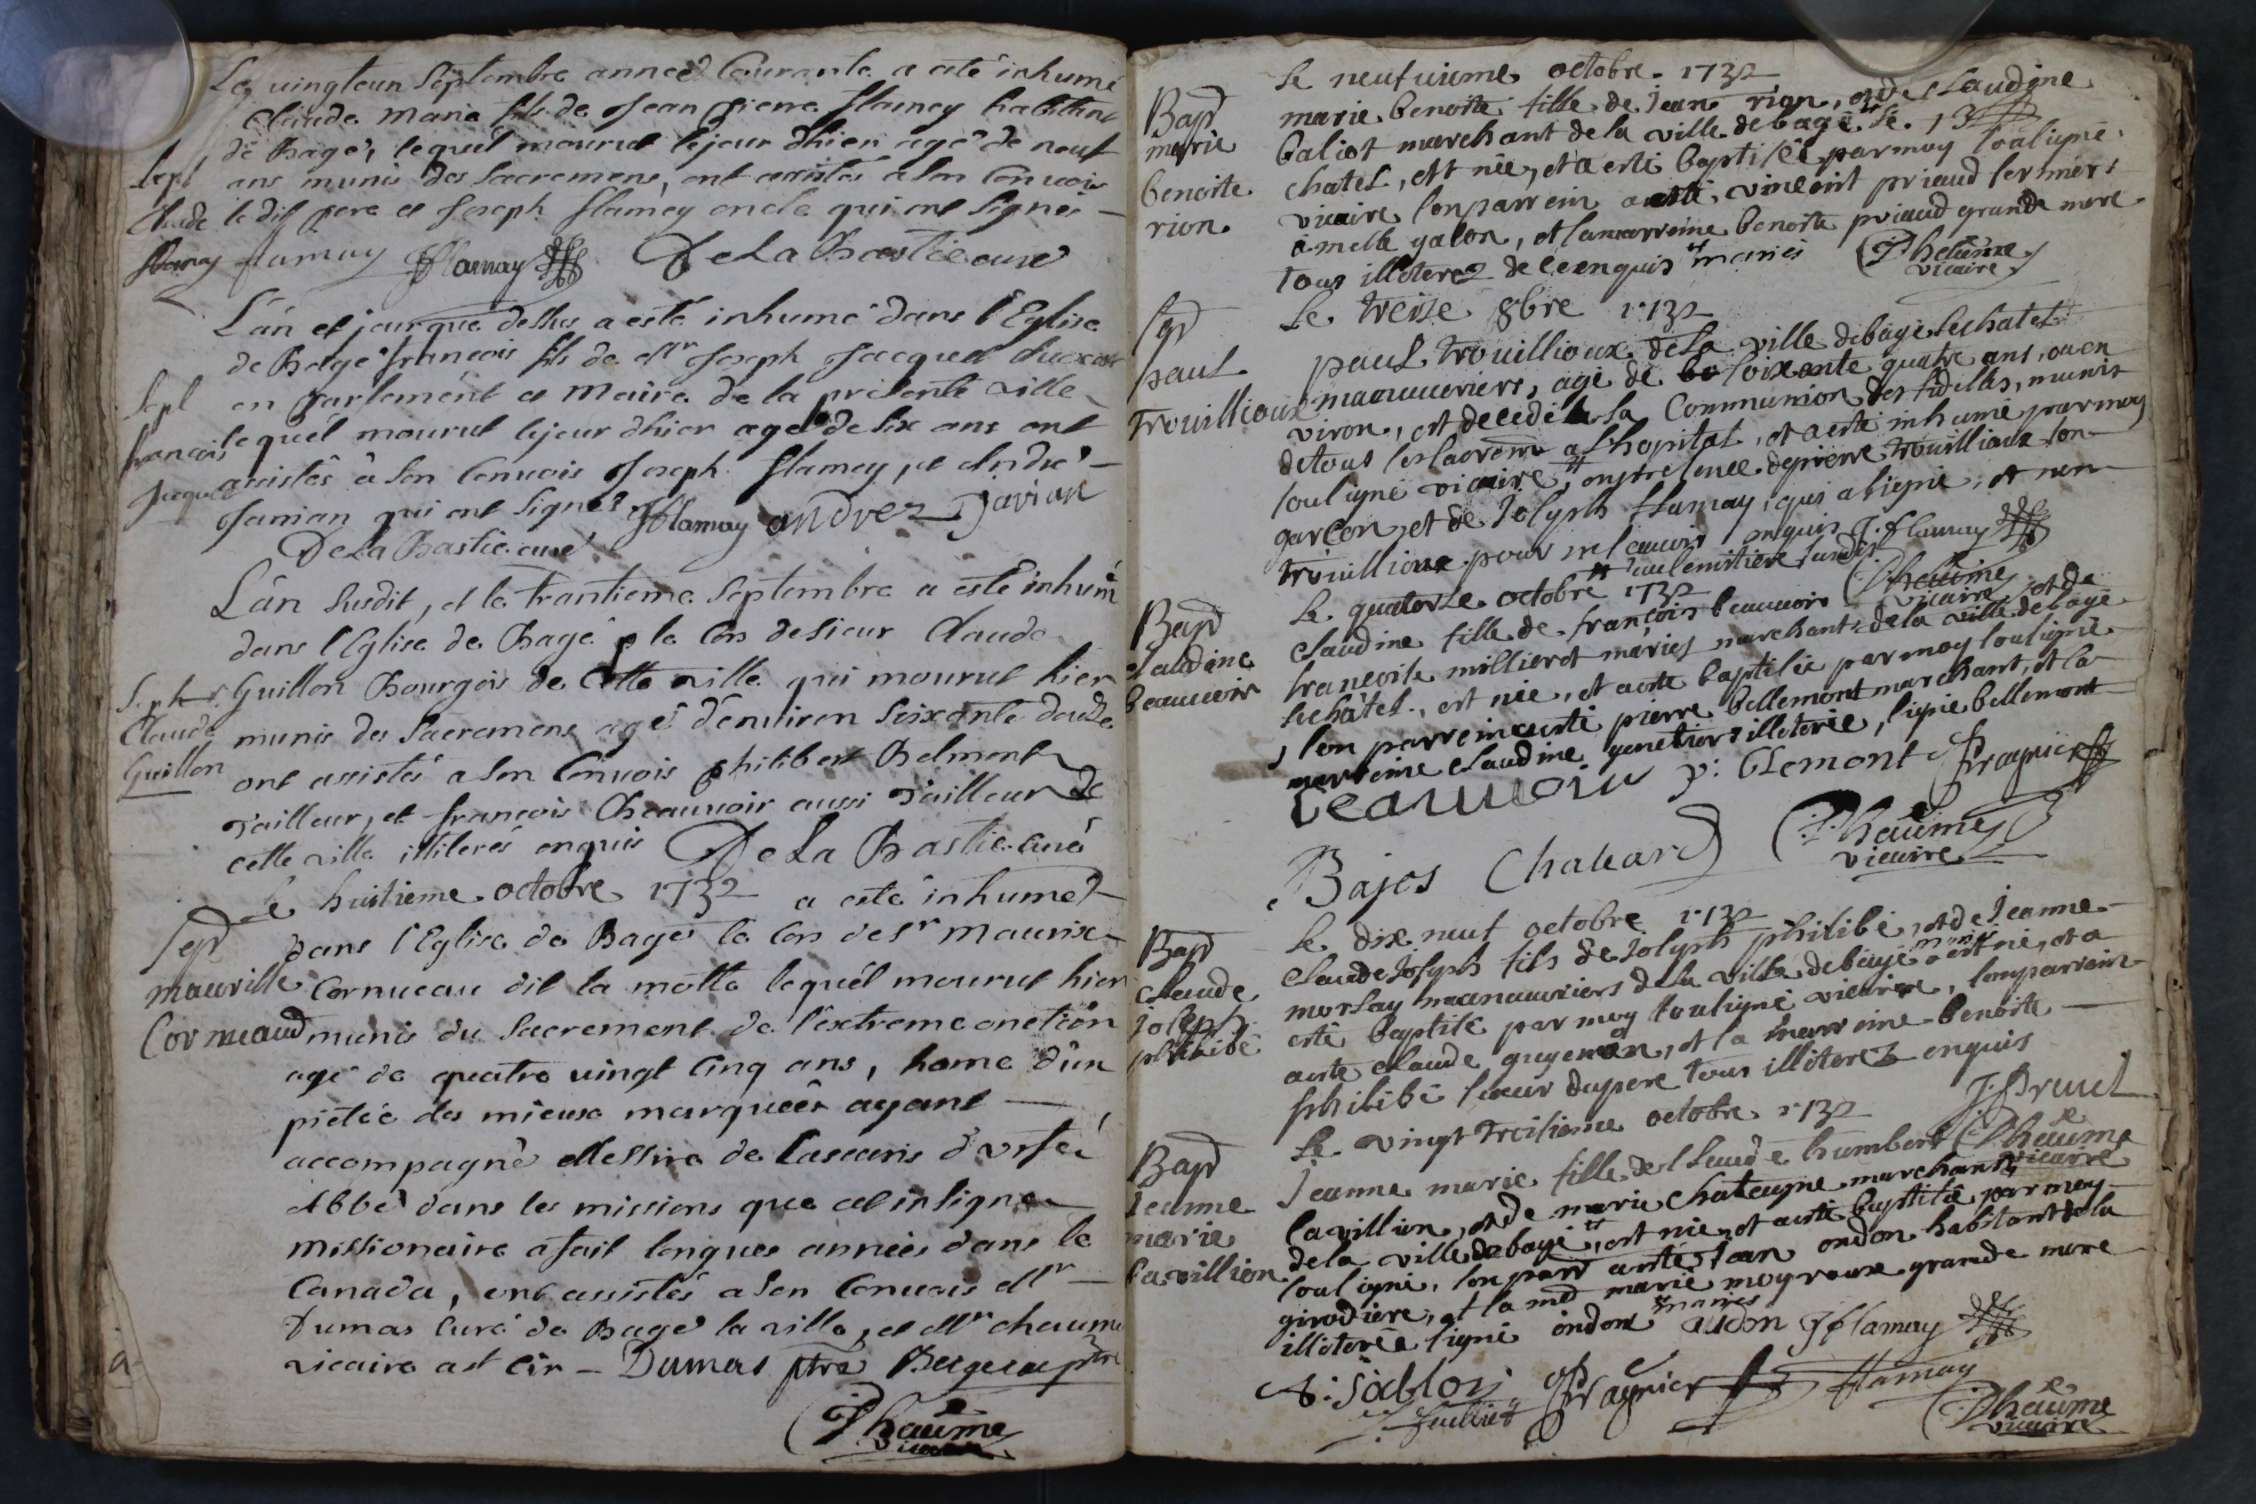 Le vingtun Septembre année Courante a esté inhumé
Claude Marie fils de Jean Pierre flamey habitant
de Bagé, lequel mourut le jour dhier agé de neuf
Sept ans munis des Sacremens, ont assistés a son Convois
Claude le dit pere et Joseph flamey oncle qui ont Signés
flamey flamay J flamay De La Bastie curé
L'an et jour que dessus a esté inhumé dans l'Eglise
de Bagé francois fils de Mr Joseph Jacquet
Sept en parlement et Maire de la presente ville
francois lequel mourut le jour dhier agé de six ans ont
Jacquet assistés à son Convois Joseph flamey, et André
Janian qui ont Signés J flamay andrez Javian
De La Bastie curé
L'an susdit, et le trantieme Septembre a esté inhumé
dans l'Eglise de Bagé le Cors de sieur Claude
Sept Guillon Bourgois de Cette ville qui mourut hier
Claude munis des Sacremens agé d'environ soixante douze
Guillon ont assistés a son Convois philibert Belmont
Tailleur, et francois Beauvoir aussi Tailleur de
cette ville illiterés enquis De La Bastie curé
Le huitieme octobre 1732 a esté inhumé
Sep dans l'Eglise de Bagé le Cors de Sr Maurise
maurille Cornueau dit la motte lequel mourut hier
Cornueaud munis du Sacrement de l'extreme onction
agé de quatre vingt Cinq ans, home d'un
pietée des mieux marqueér ayant
accompagné Messire de Lascaris d'urfé
Abbé dans les missions que cet insigne
Missionaire a fait longues années dans le
Canada, ont assistés a son Convois Mr
Dumas Curé de Bagé la ville, et Mr chaume
vicaire Dumas ptre
P haûme
vicaire
Le neufvieme octobre 1732
Bap marie benoite fille de Jean rion, et de Claudine
marie baliot marchant de la ville de bagé le
benoite chatel, est née, et a esté baptisée par moy soussigné
rion. vicaire son parrein a esté vincent priaud
amelle galon, et la marreine benoite priaud grande mere
tous illiterez de ce enquis maries P haûme
vicaire
Le treise 8bre 1732
Sep paul trouillioux de la ville de bagé le chatel
paul manuuvriers, agé de soixante quatre ans, ou en
trouillioux viron, est decedé a la Communion des fidelles, munis
de tous les sacremens a l'hopital, et a esté inhumé par moy
soussigné vicaire, en presence de pierre trouillioux son
garcon, et de Joseph flamay, qui a signé, et non
trouillioux pour ne sçavoir enquis J. flamay
au cemitiere susdit P haûme
vicaire
Le quatorze octobre 1732
Bap Claudine fille de françois beauvoir et de
Claudine francoise millieret mariés marchant de la ville de bagé
beauvoir le châtel, est née, et a esté baptisée par moy soussigné
son parrein a esté pierre bellemont marchant, et la
marreine Claudine genetier illiterée, signé bellemont
beauvoir p: blemont J Bragnier
Bajos Chavard P haûme
vicaire
Le dix neuf octobre 1732
Bap Claude Joseph fils de Joseph philibé, et de Jeanne
Claude morlay manouvriers de la ville de bagé mariés est né, et a
Joseph esté baptisé par moy soussigné vicaire, son parrein
philibé a esté Claude guyenon, et la marreine benoite
philibé soeur du pere tous illiterez enquis
J. Bruel
P haûme
vicaire
Le vingt troisieme octobre 1732
Bap Jeanne marie fille de Claude humbert
Jeanne lavillion, et de marie Chataigne marchant
marie de la ville de bagé, est née, et a esté baptisée par moy
lavillion soussigné, son parr a esté Jean ondon habitant de la
girodiere, et la mar marie moyroux grande mere
illiterée signé ondon maries audon J flamay
Sablon J Bragnier flamay
P haûme
vicaire